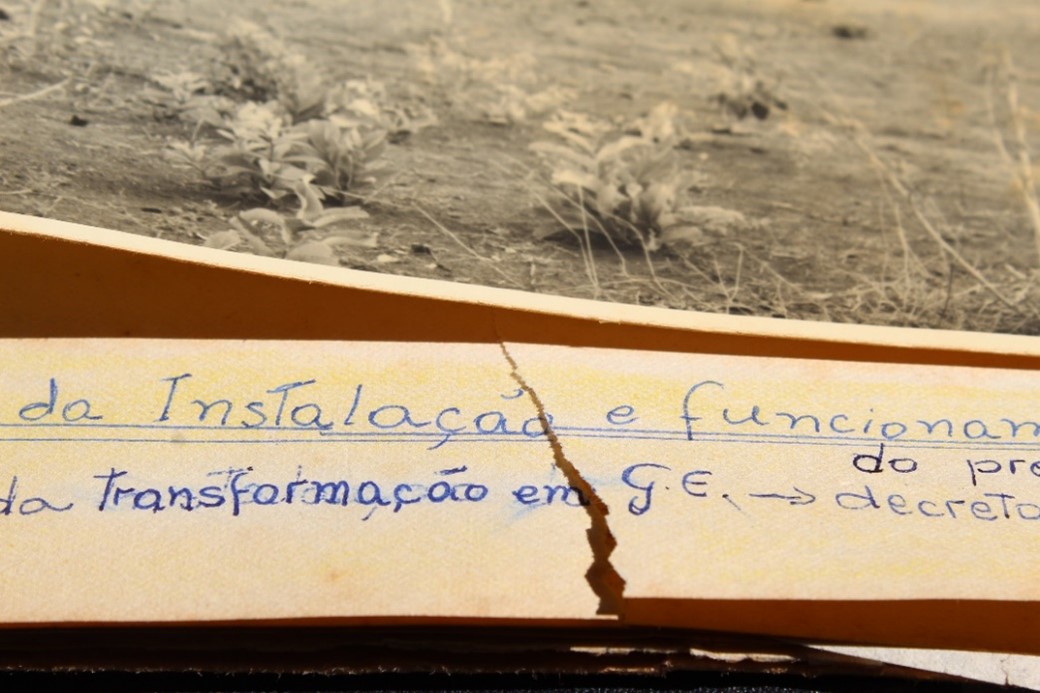 da Instalação e funcionam
do pre
da transformação em G.E. → decreto